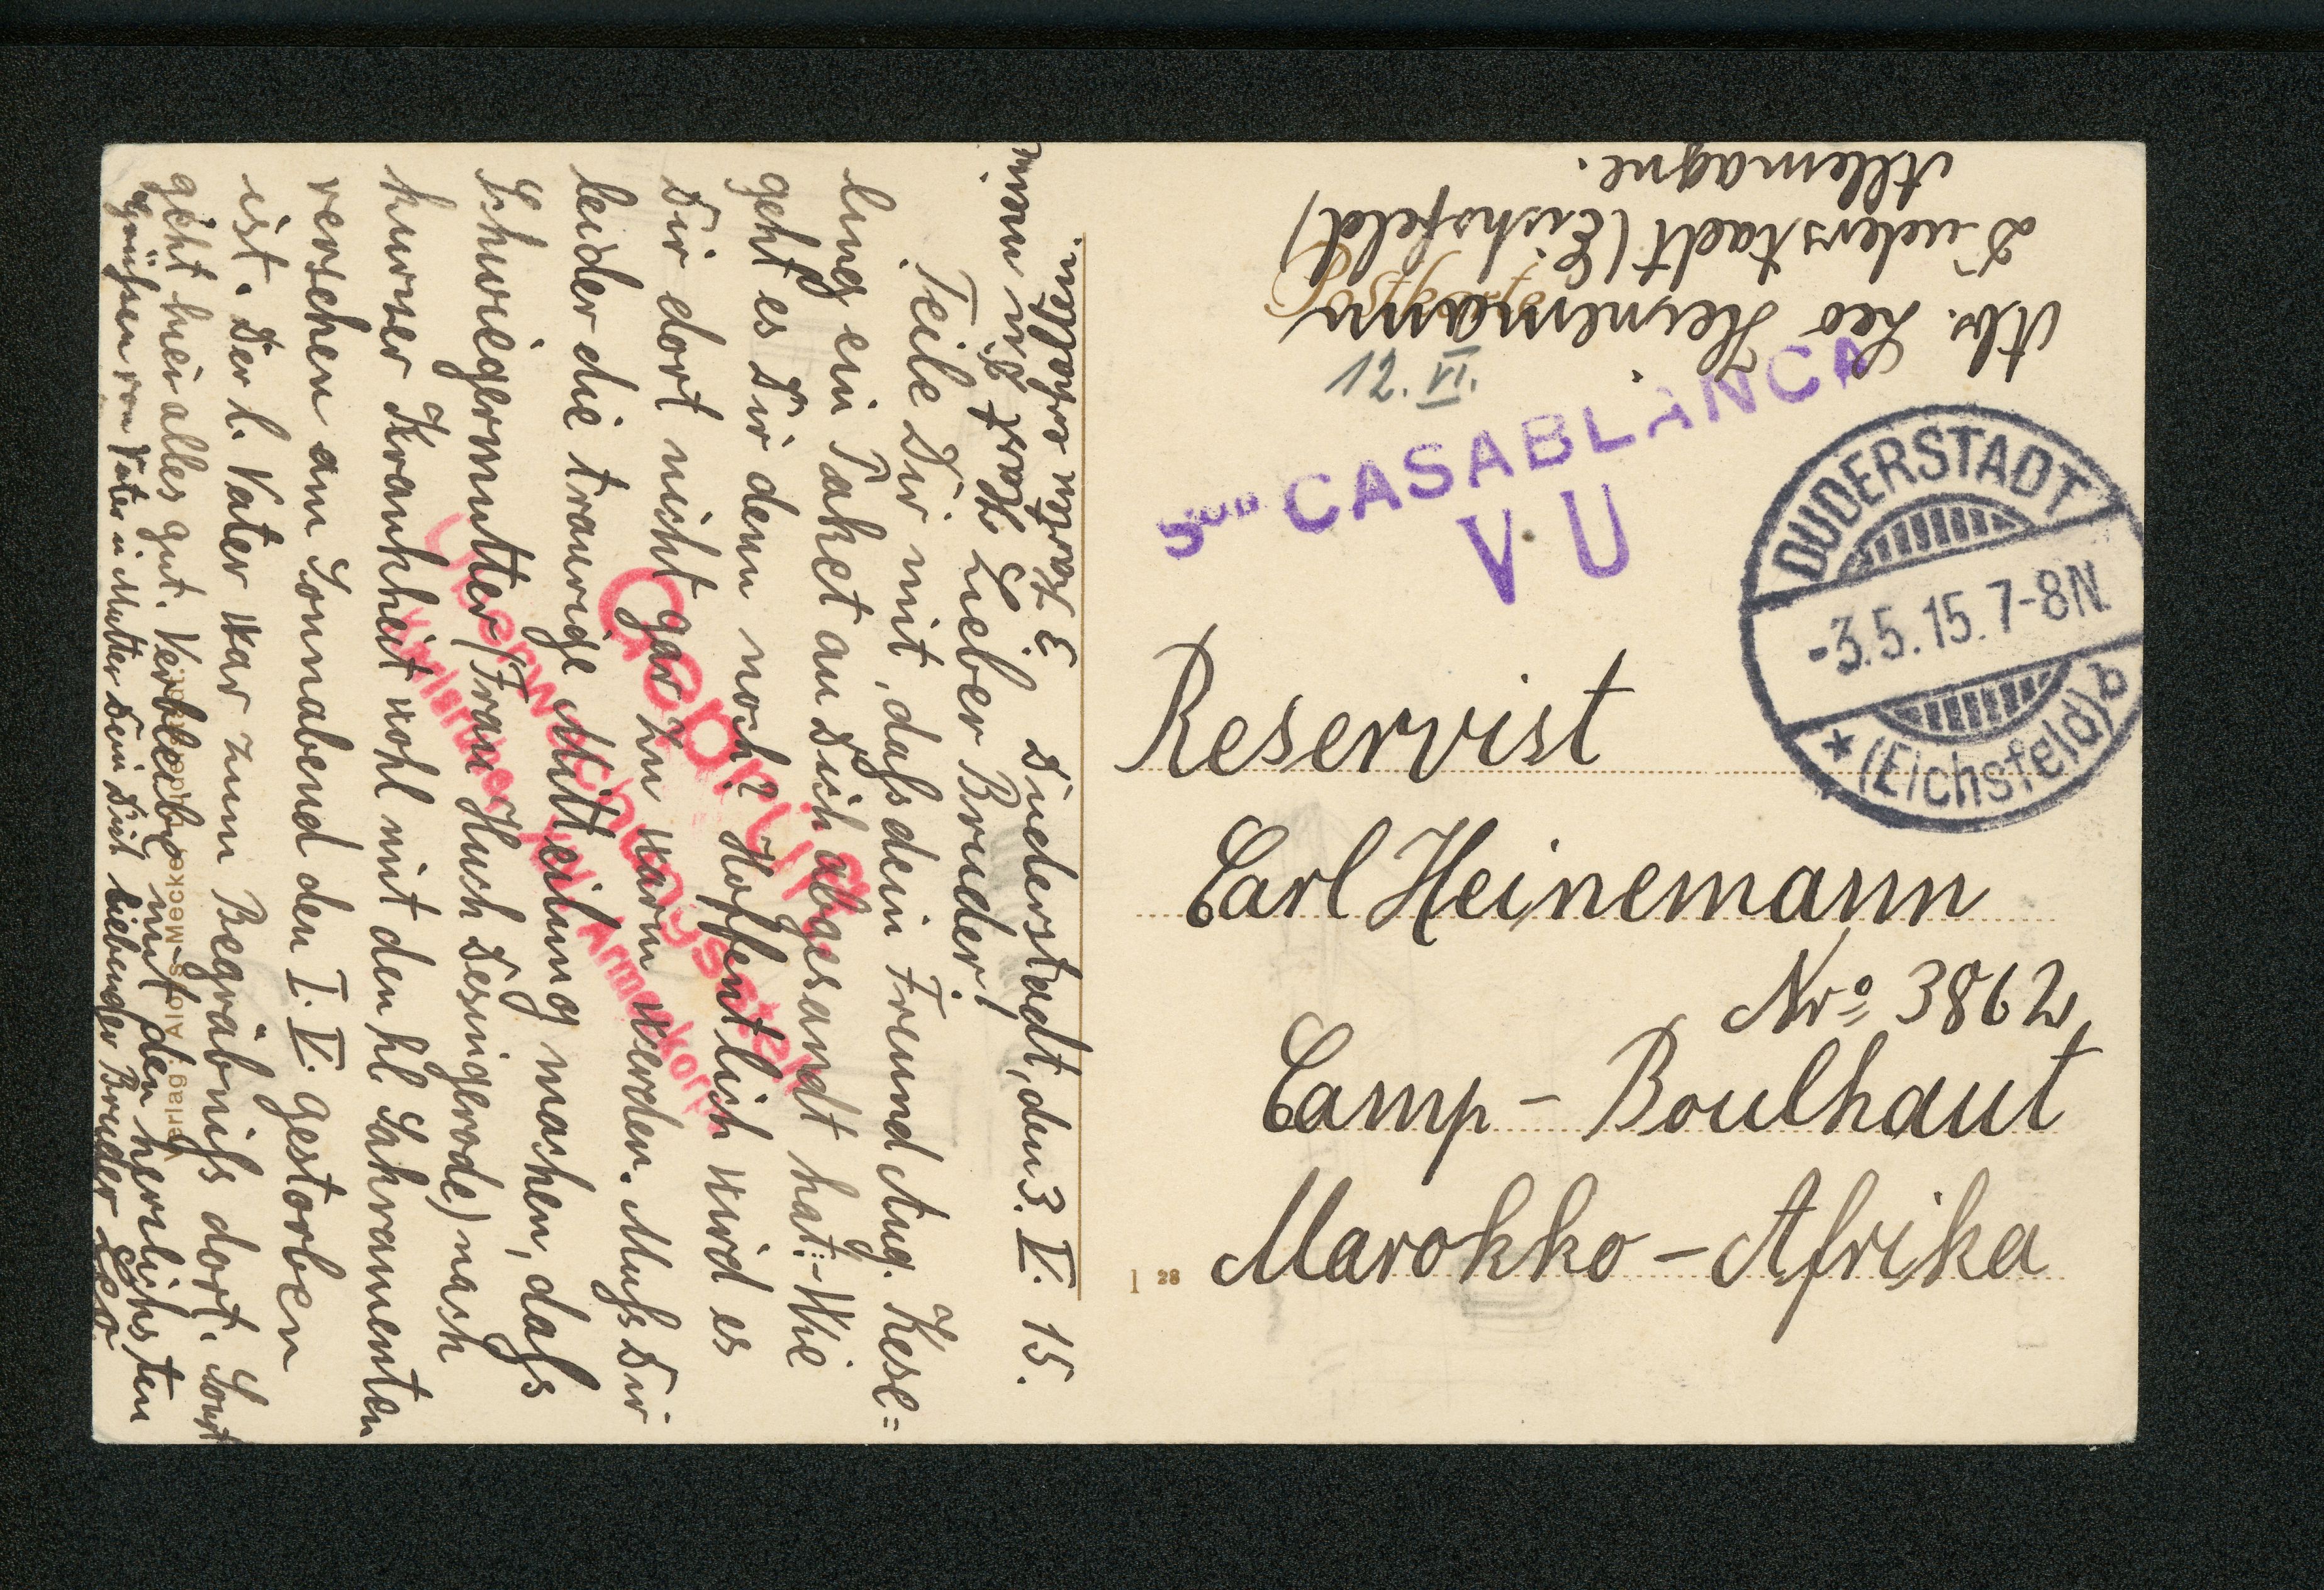 Abs. Leo Heinemann
Duderstadt (Eichsfeld)
Allemagne.
Postkarte
12. VI.
Son CASABLANCA
V U
DUDERSTADT
-3.5.15. 7-8N.
* (Eichsfeld) b
Reservist
Carl Heinemann
Nro 3862
Camp - Boulhaut
Marokko - Afrika
1 28
3 Karten erhalten.
Duderstadt, den 3. V. 15.
Lieber Bruder!
Teile Dir mit, dafs dein Freund Aug. Kese=
lung ein Paket an Dich abgesandt hat. - Wie
geht es Dir denn noch? Hoffentlich wird es
Dir dort nicht gar zu warm werden. Mufs Dir
leider die traurige Mitteilung machen, dafs
Schwiegermutter (Frau Huch Desingerode) nach
kurzer Krankheit wohl mit den hl. Sakramenten
versehen am Sonnabend den I. V. gestorben
ist. Der l. Vater war zum Begräbnifs dort. Sonst
geht hier alles gut. Verbleibe mit den herzlichsten
Grüfsen von Vater u. Mutter Dein Dich liebender Bruder Leo.
Geprüft
Überwachungsstelle
Armeekorps
Verlag: Alois Mecke